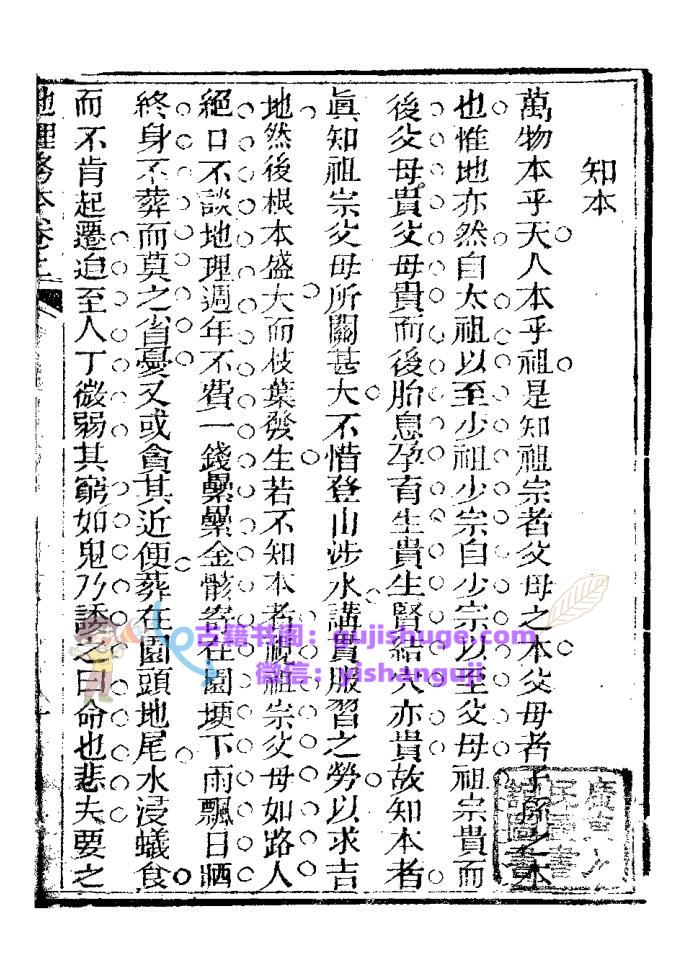 知本
萬物本乎天人本乎祖是知祖宗者父母之本父母者子孫之本
也惟地亦然自太祖以至少祖少宗自少宗以至父母祖宗貴而
後父母貴父母貴而後胎息孕育生貴生賢結穴亦貴故知本者
眞知祖宗父母所關甚大不惜登山涉水講貫服習之勞以求吉
地然後根本盛大而枝葉發生若不知本者視祖宗父母如路人
絕口不談地理週年不費一錢纍纍金骸寄在園埂下雨飄日晒
終身不葬而莫之省憂又或貪其近便葬在園頭地尾水浸蟻食
而不肯起遷迨至人丁微弱其窮如鬼乃諉之曰命也悲夫要之
地理務本卷上
古籍书阁：gujishuge.com
微信：yishanguji